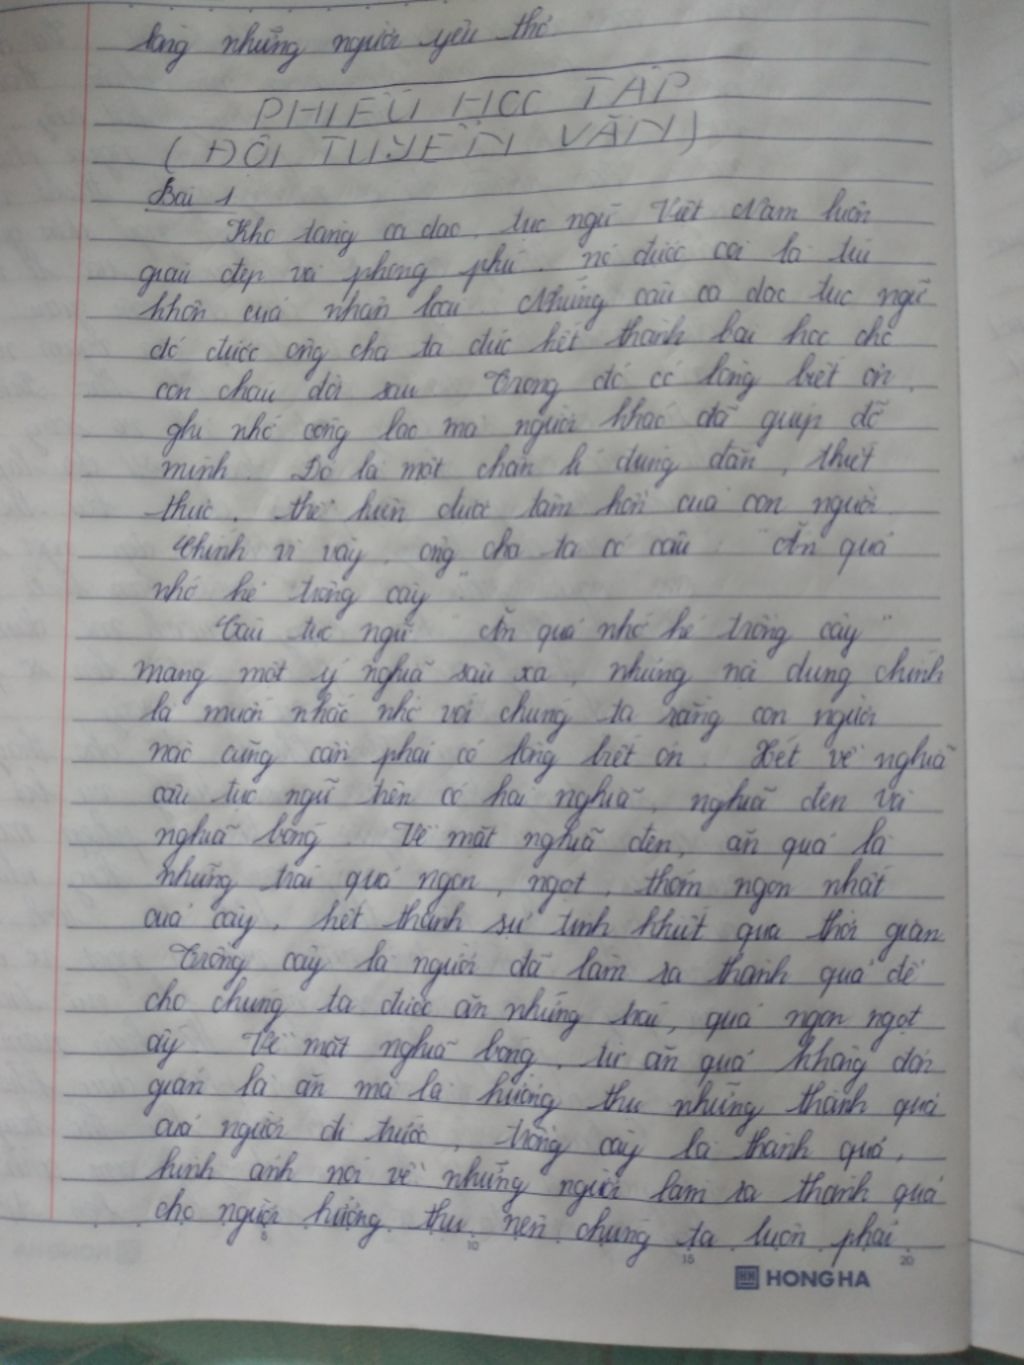 lòng những người yêu thơ
PHIẾU HỌC TẬP
(ĐỘI TUYỂN VĂN)
Bài 1
Kho tàng ca dao, tục ngữ Việt Nam luôn
giàu đẹp và phong phú. nó được coi là túi
khôn của nhân loại. Những câu ca dao tục ngữ
đó được ông cha ta đúc kết thành bài học cho
con cháu đời sau. Trong đó có lòng biết ơn,
ghi nhớ công lao mà người khác đã giúp đỡ
mình. Đó là một chân lí đúng đắn, thiết
thực, thể hiện được tâm hồn của con người.
Chính vì vậy, ông cha ta có câu: "Ăn quả
nhớ kẻ trồng cây"
Câu tục ngữ "Ăn quả nhớ kẻ trồng cây"
mang một ý nghĩa sâu xa, nhưng nội dung chính
là muốn nhắc nhở với chúng ta rằng con người
nào cũng cần phải có lòng biết ơn. Xét về nghĩa
câu tục ngữ trên có hai nghĩa, nghĩa đen và
nghĩa bóng. Về mặt nghĩa đen, ăn quả là
những trái quả ngon, ngọt, thơm ngon nhất
của cây, kết thành sự tinh khiết qua thời gian
Trồng cây là người đã làm ra thành quả để
cho chúng ta được ăn những trái, quả ngon ngọt
ấy. Về mặt nghĩa bóng, từ ăn quả không đơn
giản là ăn mà là hưởng thụ những thành quả
của người đi trước, trồng cây là thành quả,
hình ảnh nói về những người làm ra thành quả
cho người hưởng thụ nên chúng ta luôn phải
5 10 15 20
HONG HA